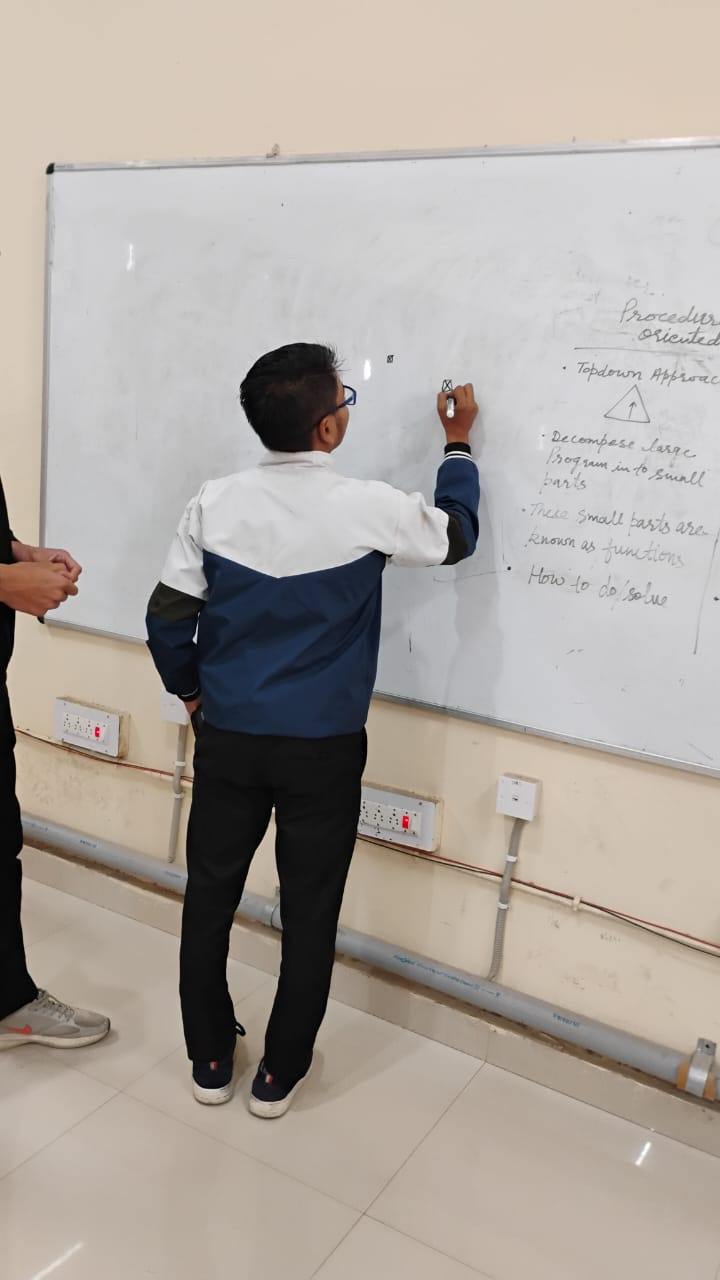 Procedur
oriented
• Topdown Approac
• Decompose large
Program in to small
parts
• These small parts are
known as functions
How to do/solve